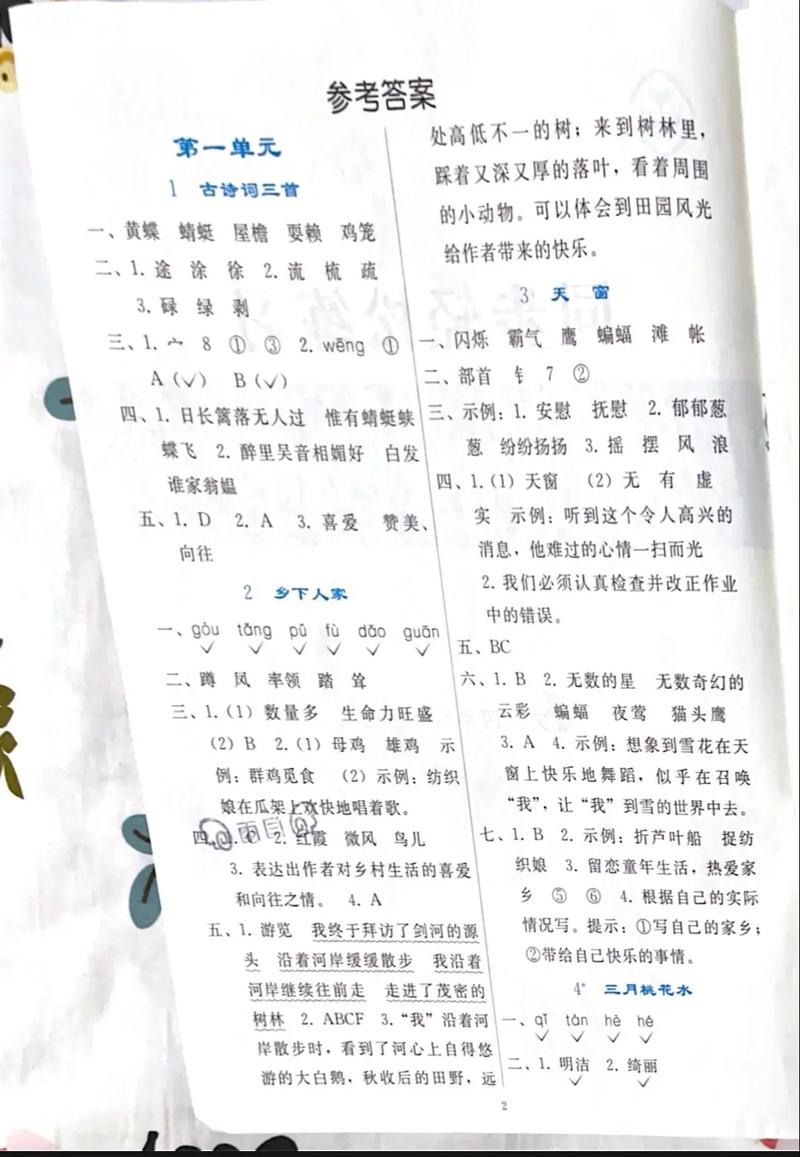 参考答案
第一单元
1 古诗词三首
一、黄蝶 蜻蜓 屋檐 耍赖 鸡笼
二、1. 途 涂 徐 2. 流 梳 疏
3. 碌 绿 剥
三、1. 宀 8 ① ③ 2. wēng ①
A(✓) B(✓)
四、1. 日长篱落无人过 惟有蜻蜓蛱
蝶飞 2. 醉里吴音相媚好 白发
谁家翁媪
五、1. D 2. A 3. 喜爱 赞美、
向往
2 乡下人家
一、gòu tǎng pǔ fù dǎo guān
✓ ✓ ✓ ✓ ✓ ✓
二、蹲 凤 率领 踏 耸
三、1.(1) 数量多 生命力旺盛
(2) B 2.(1) 母鸡 雄鸡 示
例:群鸡觅食 (2) 示例:纺织
娘在瓜架上欢快地唱着歌。
四、 2. 红霞 微风 鸟儿
3. 表达出作者对乡村生活的喜爱
和向往之情。 4. A
五、1. 游览 我终于拜访了剑河的源
头 沿着河岸缓缓散步 我沿着
河岸继续往前走 走进了茂密的
树林 2. ABCF 3.“我”沿着河
岸散步时,看到了河心上自得悠
游的大白鹅,秋收后的田野,远
处高低不一的树;来到树林里,
踩着又深又厚的落叶,看着周围
的小动物。可以体会到田园风光
给作者带来的快乐。
3 天 窗
一、闪烁 霸气 鹰 蝙蝠 滩 帐
二、部首 钅 7 ②
三、示例:1. 安慰 抚慰 2. 郁郁葱
葱 纷纷扬扬 3. 摇 摆 风 浪
四、1.(1) 天窗 (2) 无 有 虚
实 示例:听到这个令人高兴的
消息,他难过的心情一扫而光
2. 我们必须认真检查并改正作业
中的错误。
五、BC
六、1. B 2. 无数的星 无数奇幻的
云彩 蝙蝠 夜莺 猫头鹰
3. A 4. 示例:想象到雪花在天
窗上快乐地舞蹈,似乎在召唤
“我”,让“我”到雪的世界中去。
七、1. B 2. 示例:折芦叶船 捉纺
织娘 3. 留恋童年生活,热爱家
乡 ⑤ ⑥ 4. 根据自己的实际
情况写。提示:①写自己的家乡;
②带给自己快乐的事情。
4* 三月桃花水
一、qī tán hè hé
✓ ✓ ✓ ✓
二、1. 明洁 2. 绮丽
✓ ✓
2